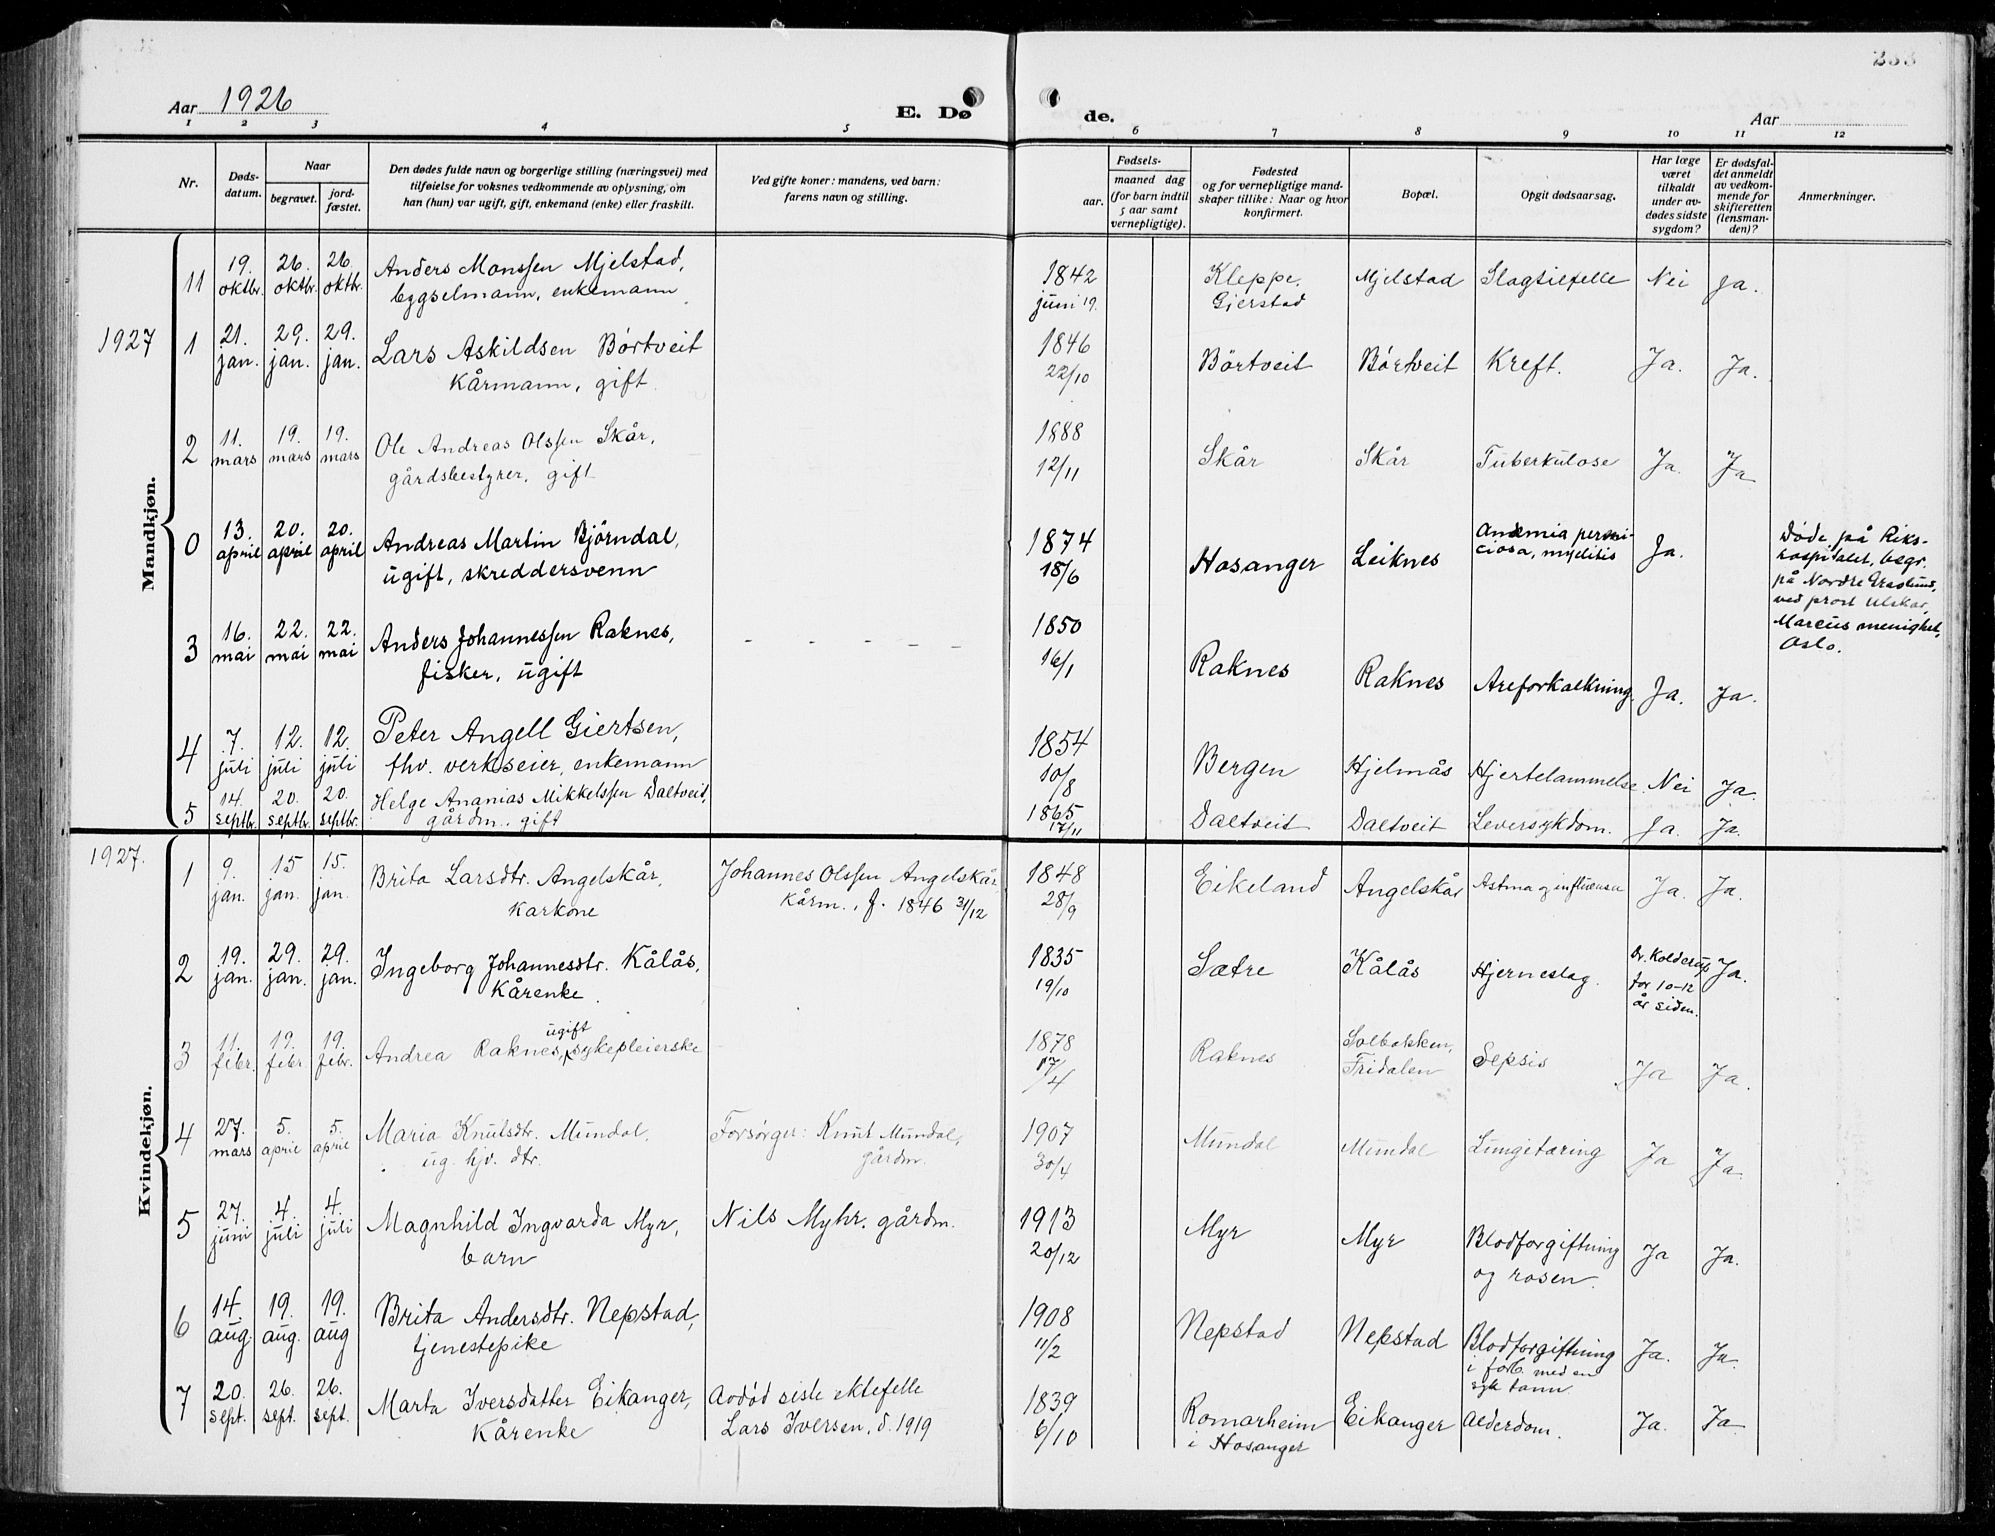 Aar 1926
E. Dø de.
Aar
233
1 2 3 4 5 6 7 8 9 10 11 12
Nr.
Døds-
datum.
Naar
begravet.
jord-
fæstet.
Den dødes fulde navn og borgerlige stilling (næringsvei) med
tilføielse for voksnes vedkommende av oplysning, om
han (hun) var ugift, gift, enkemand (enke) eller fraskilt.
Ved gifte koner: mandens, ved barn:
farens navn og stilling.
Fødsels-
aar.
maaned dag
(for barn indtil
5 aar samt
vernepligtige).
Fødested
og for vernepligtige mand-
skaper tillike: Naar og hvor
konfirmert.
Bopæl.
Opgit dødsaarsag.
Har læge
været
tilkaldt
under av-
dødes sidste
sygdom?
Er dødsfal-
det anmeldt
av vedkom-
mende for
skifteretten
(lensman-
den)?
Anmerkninger.
Mandkjøn.
11 19. oktbr. 26. oktbr. 26. oktbr. Anders Monssen Mjelstad,
bygselmann, enkemann
1842
juni 19.
Kleppe.
Gjerstad
Mjelstad Slagtilfelle Nei Ja.
1927 1 21. jan. 29. jan. 29. jan. Lars Askildsen Børtveit
Kårmann, gift
1846
22/10
Børtveit Børtveit Kreft. Ja. Ja.
2 11. mars 19. mars 19. mars Ole Andreas Olssen Skår,
gårdsbestyrer, gift
1888
12/11
Skår Skår Tuberkulose Ja. Ja
0 13. april 20. april 20. april Andreas Martin Bjørndal,
ugift, skreddersvenn
1874
18/6
Hosanger Leiknes Anæmia perni-
ciosa, myelitis
Ja.
Døde på Riks-
hospitalet, begr.
på Nordre Gravlund,
ved prost Ulskar,
Marcus menighet,
Oslo.
3 16. mai 22. mai 22. mai Anders Johannessen Raknes,
fisker, ugift
- - - - -
1850
16/1
Raknes Raknes Areforkalkning. Ja. Ja.
4 7. juli 12. juli 12. juli Peter Angell Giertsen,
fhv. verkseier, enkemann
1854
10/8
Bergen Hjelmås Hjertelammelse Nei Ja.
5 14. septbr. 20. septbr. 20. septbr. Helge Ananias Mikkelssen Daltveit,
gårdm., gift
1865
17/11
Daltveit Daltveit Leversykdom. Ja. Ja.
Kvindekjøn.
1927. 1 9. jan. 15 jan. 15. jan. Brita Larsdtr. Angelskår,
Karkone
Johannes Olssen Angelskår
Kårm., f. 1846 31/12
1848
28/9
Eikeland Angelskår Astma og influensa Ja. Ja.
2 19. jan. 29. jan. 29. jan. Ingeborg Johannesdtr. Kålås,
Kårenke.
1835
19/10
Sætre Kålås Hjerneslag.
Dr. Kolderup
for 10-12
år siden.
Ja.
3 11. febr. 19. febr. 19. febr. Andrea Raknes, ugift sykepleierske
1878
17/4
Raknes Solbakken,
Fridalen
Sepsis Ja Ja.
4 27. mars 5. april 5. april Maria Knutsdtr. Mundal,
ug. hjv. dtr.
Forsørger: Knut Mundal,
gårdm.
1907
30/4
Mundal Mundal Lungetæring Ja Ja.
5 27. juni 4. juli 4. juli Magnhild Ingvarda Myr,
barn
Nils Myhr. gårdm.
1913
20/12
Myr Myr Blodforgiftning
og rosen.
Ja Ja.
6 14. aug. 19. aug. 19. aug Brita Andersdtr. Nepstad,
tjenestepike
1908
11/2
Nepstad Nepstad Blodforgiftning
i forb. med en
syk tann
Ja. Ja.
7 20. sept. 26. sept. 26. sept. Marta Iversdatter Eikanger,
Kårenke
Avdød siste ektefelle
Lars Iversen, d. 1919
1839
6/10
Romarheim
i Hosanger
Eikanger Alderdom. Ja. Ja